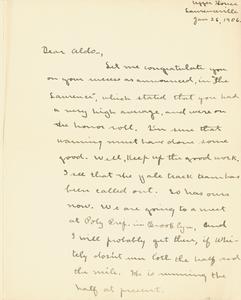 Upper House
Lawrenceville
Jan 26, 1906.
Dear Aldo,
Let me congratulate you
on your success as announced, in "The
Lawrence", which stated that you had
a very high average, and were on
the honor roll. I'm sure that
warning must have done some
good. Well, Keep up the good work.
I see that the Yale track team has
been called out. So has ours
now. We are going to a meet
at Poly Prep. in Brooklyn, and
I will probably get there, if Whi-
tely doesn't run both the half and
the mile. He is running the
half at present.